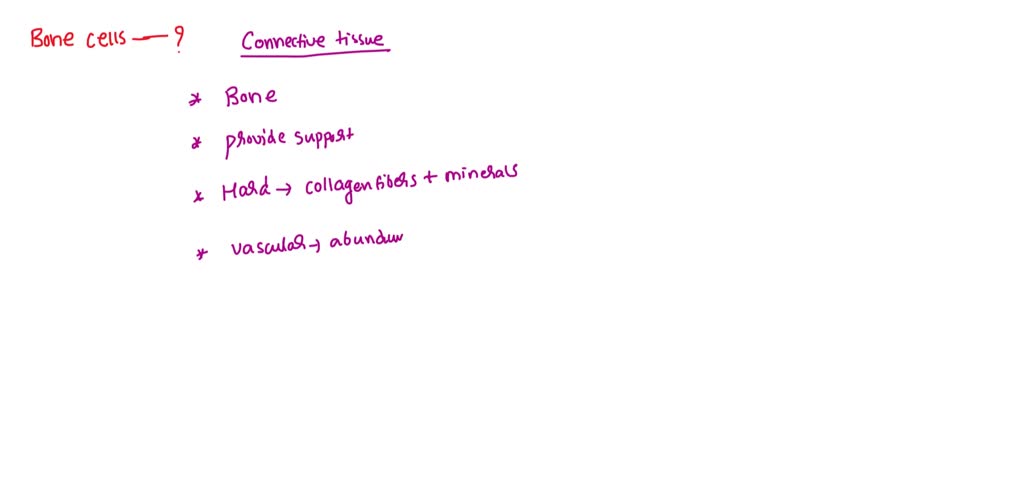 Bone cells — ?
Connective tissue
* Bone
* provide support
* Hard → collagen fibers + minerals
* vascular → abundan